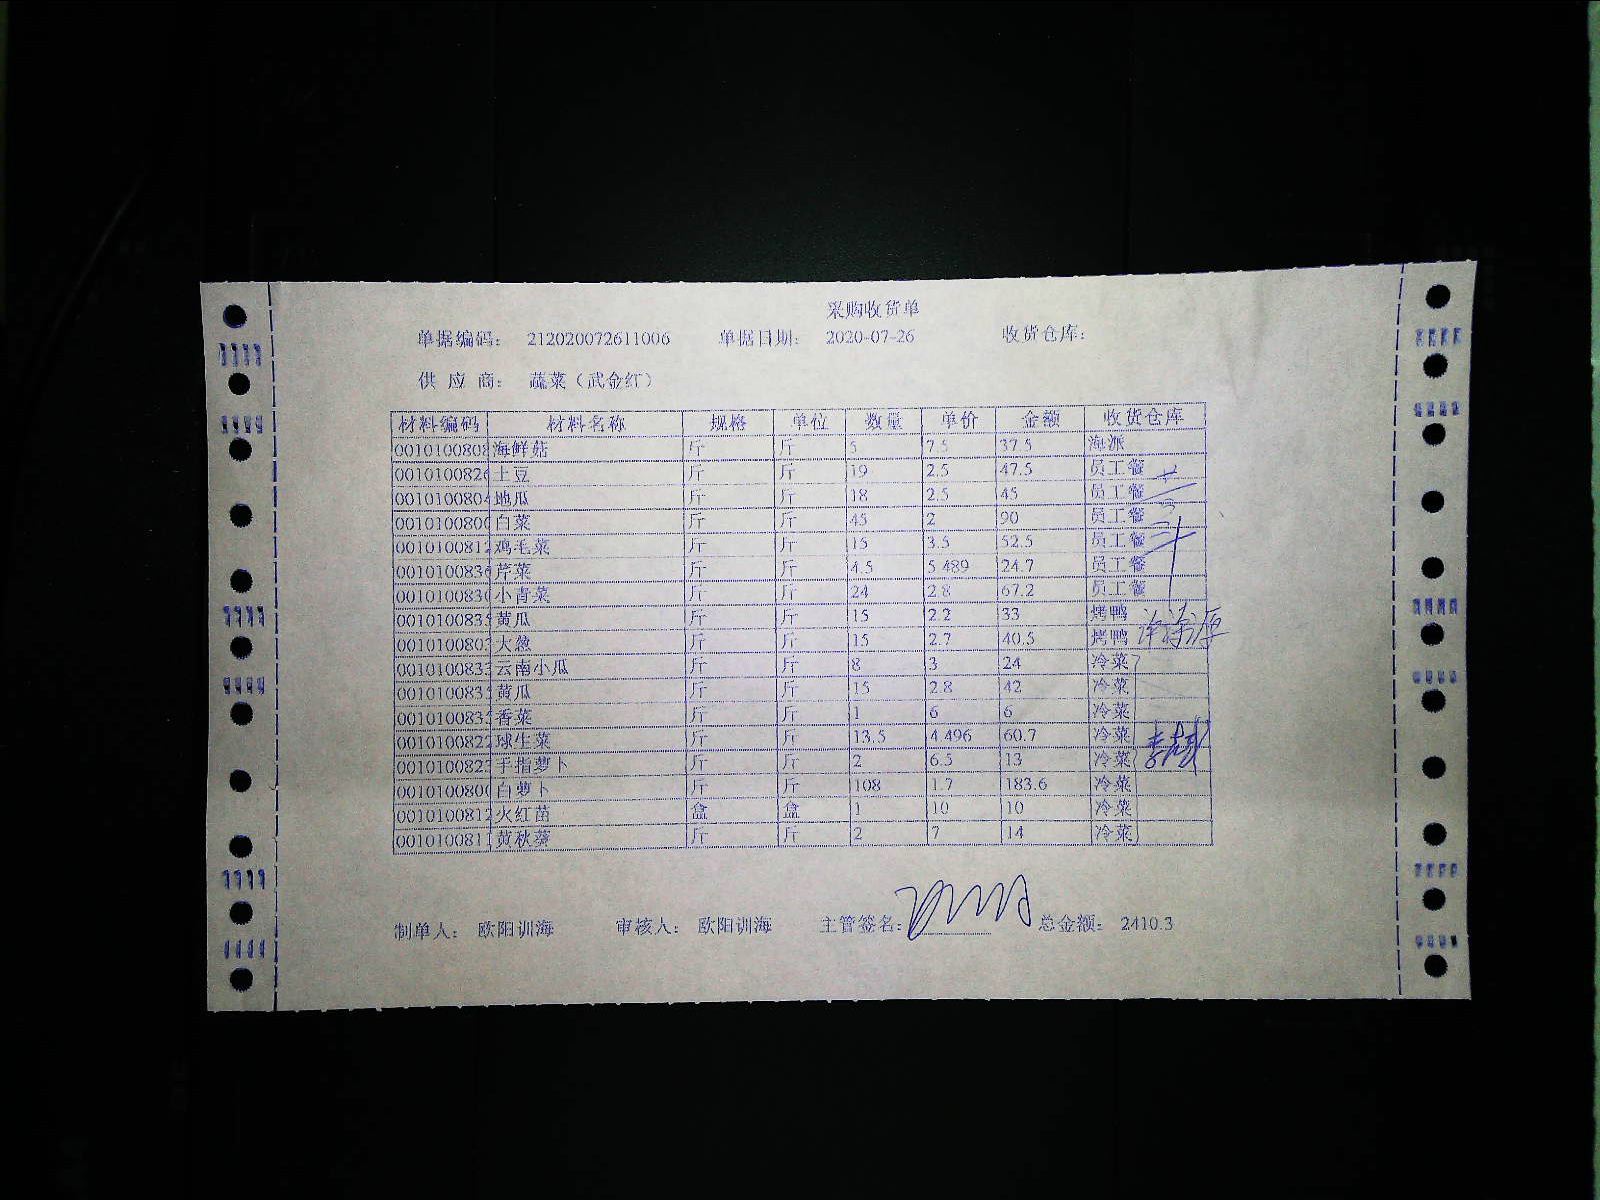 采购收货单
单据编码: 212020072611006 单据日期: 2020-07-26 收货仓库:
供 应 商: 蔬菜（武金红）
材料编码 材料名称 规格 单位 数量 单价 金额 收货仓库
0010100808 海鲜菇 斤 斤 5 7.5 37.5 海派
0010100826 土豆 斤 斤 19 2.5 47.5 员工餐
0010100804 地瓜 斤 斤 18 2.5 45 员工餐
001010080 白菜 斤 斤 45 2 90 员工餐
001010081 鸡毛菜 斤 斤 15 3.5 52.5 员工餐
001010083 芹菜 斤 斤 4.5 5.489 24.7 员工餐
001010083 小青菜 斤 斤 24 2.8 67.2 员工餐
001010083 黄瓜 斤 斤 15 2.2 33 烤鸭
001010080 大葱 斤 斤 15 2.7 40.5 烤鸭
001010083 云南小瓜 斤 斤 8 3 24 冷菜
001010083 黄瓜 斤 斤 15 2.8 42 冷菜
001010083 香菜 斤 斤 1 6 6 冷菜
001010082 球生菜 斤 斤 13.5 4.496 60.7 冷菜
001010082 手指萝卜 斤 斤 2 6.5 13 冷菜
001010080 白萝卜 斤 斤 108 1.7 183.6 冷菜
001010081 火红苗 盒 盒 1 10 10 冷菜
001010081 黄秋葵 斤 斤 2 7 14 冷菜
制单人: 欧阳训海 审核人: 欧阳训海 主管签名: 总金额: 2410.3